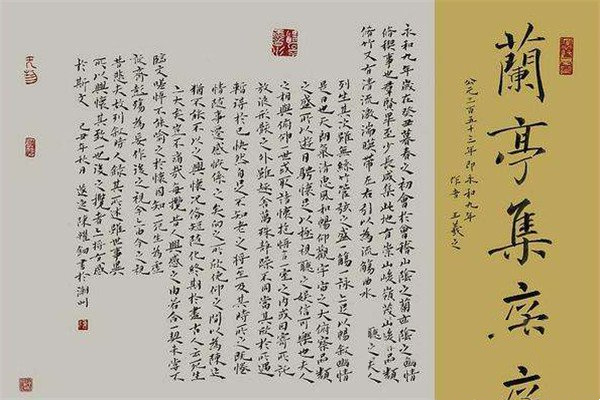 蘭亭集序
公元三百五十三年即永和九年
作者 王羲之
永和九年歲在癸丑暮春之初會於會稽山陰之蘭亭幽情
脩稧事也群賢畢至少長咸集此地有崇山峻嶺茂
脩竹又有清流激湍映帶左右引以為流觴曲水
列坐其次雖無絲竹管弦之盛一觴一詠亦足以暢敘幽情
是日也天朗氣清惠風和暢仰觀宇宙之大俯察品類
之盛所以遊目騁懷足以極視聽之娛信可樂也夫人
之相與俯仰一世或取諸懷抱悟言一室之內或因寄所託
放浪形骸之外雖趣舍萬殊靜躁不同當其欣於所遇
暫得於己快然自足不知老之將至及其所之既惓
情隨事遷感慨係之矣向之所欣俛仰之間以為陳迹
猶不能不以之興懷況脩短隨化終期於盡古人云死生
亦大矣豈不痛哉每攬昔人興感之由若合一契未嘗不
臨文嗟悼不能喻之於懷固知一死生為虛
誕齊彭殤為妄作後之視今亦由今之視
昔悲夫故列敘時人錄其所述雖世事異
所以興懷其致一也後之攬者亦將有感
於斯文 年秋月 陳耀 書於潮州